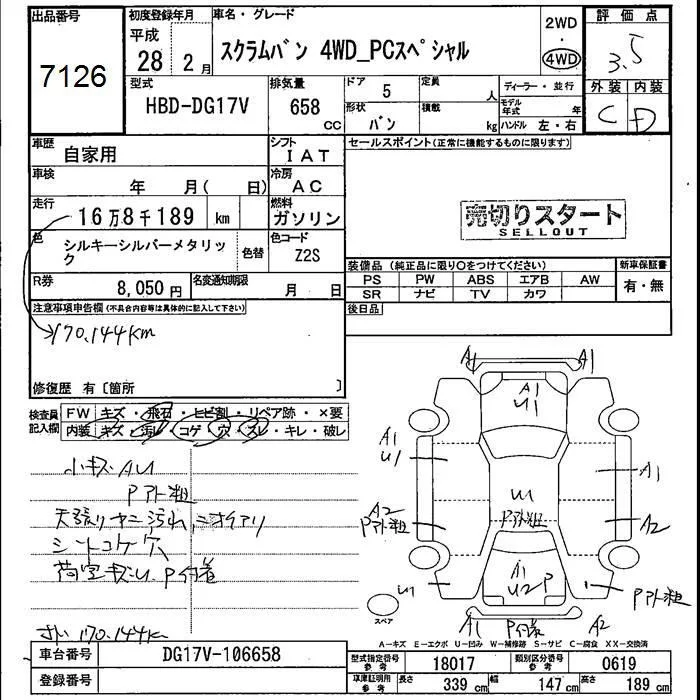 出品番号
7126
初度登録年月
平成
28 2月
車名・グレード
スクラムバン 4WD_PCスペシャル
2WD
・
4WD
評価点
3.5
外装 内装
C D
型式
HBD-DG17V
排気量
658
cc
ドア 5
定員 人
形状 バン
積載 kg
ディーラー・並行
モデル年式 年
ハンドル 左・右
車歴 自家用
シフト IAT
セールスポイント(正常に機能するものに限ります)
車検 年 月( 日)
冷房 AC
走行 16万8千189 km
燃料 ガソリン
売切りスタート
SELLOUT
色 シルキーシルバーメタリック
色替
色コード Z2S
R券 8,050円
名変通知期限 月 日
装備品(純正品に限り○をつけてください)
新車保証書
PS PW ABS エアB AW
SR ナビ TV カワ
有・無
注意事項申告欄(不具合内容等は具体的に記入して下さい)
170.144km
後日品
修復歴 有〔箇所 〕
検査員記入欄
FW キズ・飛石・ヒビ割・リペア跡・×要
内装 キズ・汚れ・コゲ・穴・スレ・キレ・破レ
小キズ AU
Pアト粗
天張り ヤニ汚れ ニオイアリ
シートコゲ穴
荷室キズU P付着
170.144km
A1 A1
A1
U1
A1
U1
A1
U1
Pアト粗
A2
Pアト粗
A2
U1
A1
U2 P
Pアト粗
A1 P付着 A2
スペア
A-キズ E-エクボ U-凹み W-補修跡 S-サビ C-腐食 XX-交換済
車台番号 DG17V-106658
登録番号
型式指定番号参考 18017
類別区分番号参考 0619
車庫証明用参考
長さ 339cm
幅 147cm
高さ 189cm